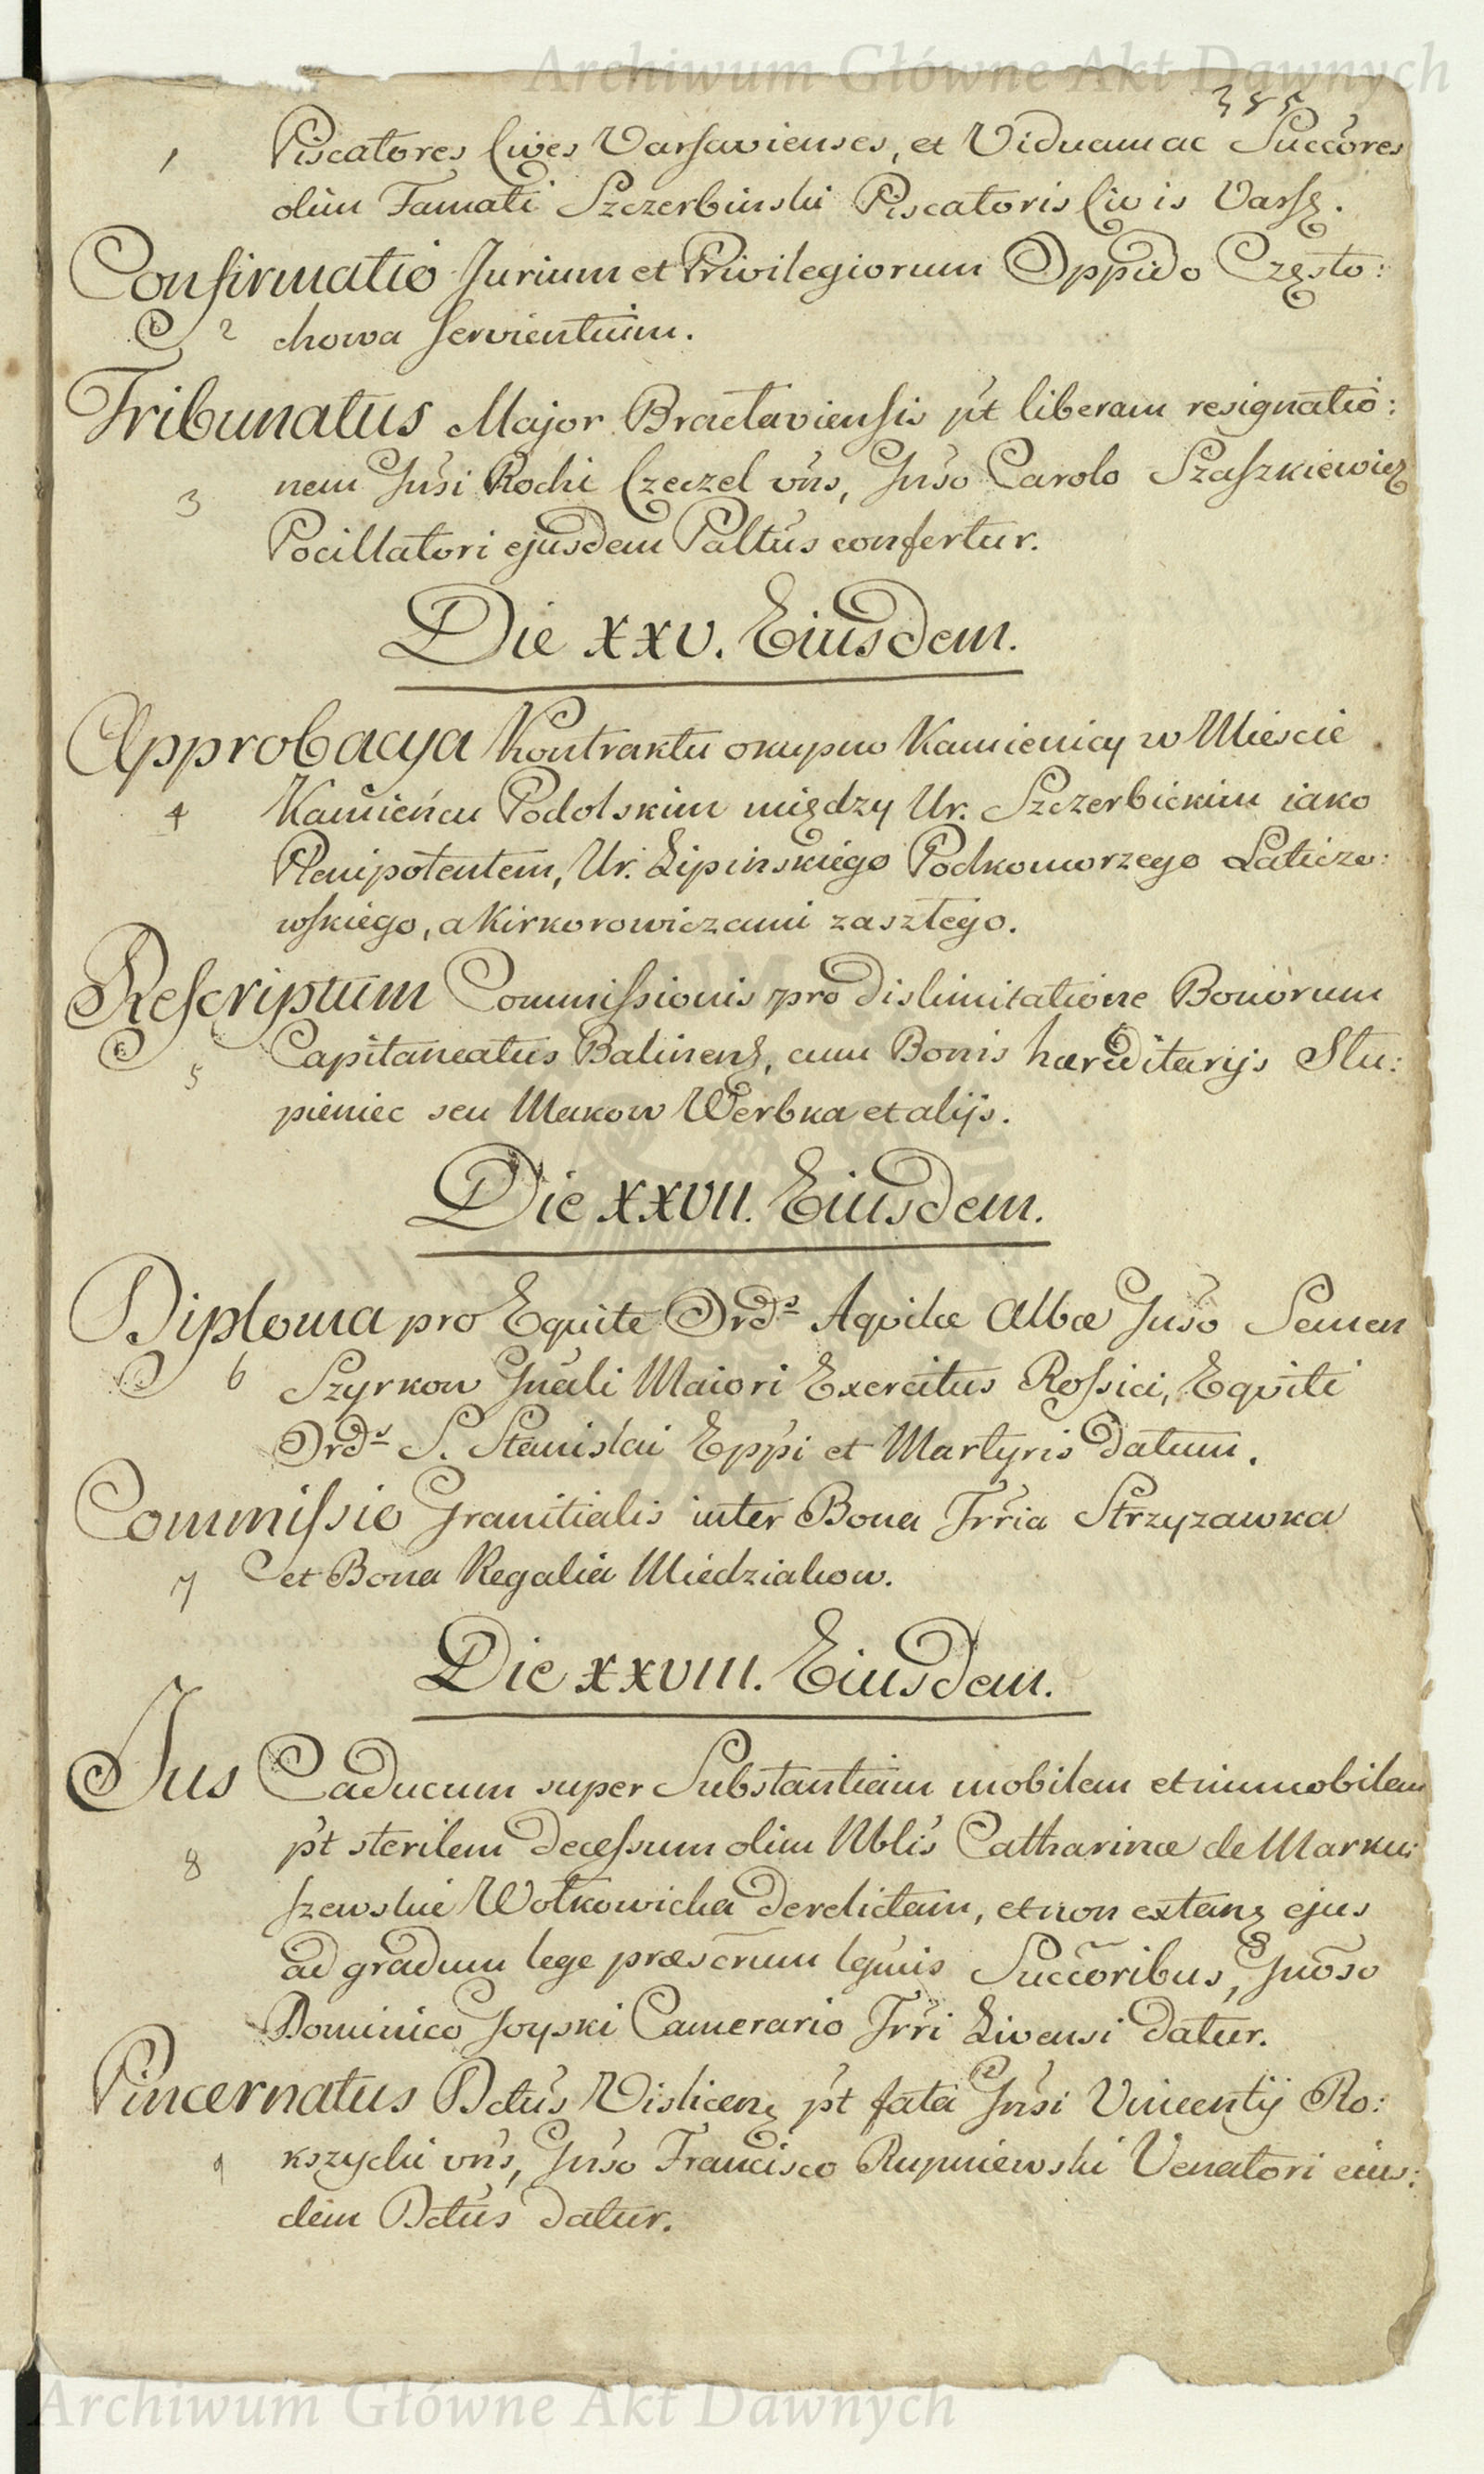 Archiwum Główne Akt Dawnych
385
1 Piscatores Cives Varsavienses, et Viduam ac Succ̃ores
olim Famati Szczerbinski Piscatoris Civis Varsȝ.
Confirmatio Jurium et Privilegiorum Oppido Często:
2 chowa servientium.
Tribunatus Major Braclaviensis p̃t liberam resignatio:
3 nem Gñsi Rochi Czeczel ṽns, Gñso Carolo Szaszkiewicz
Pocillatori ejusdem Paltũs confertur.
Die XXV. Eiusdem.
Approbacya Kontraktu okupno Kamienicy w Mieście
4 Kamieńcu Podolskim między Ur. Szczerbickim iako
Plenipotentem, Ur. Lipinskiego Podkomorzego Laticzo:
wskiego, a Kirkorowiczami zaszłego.
Rescriptum Commissionis pro dislimitatione Bonorum
5 Capitaneatus Balinenȝ, cum Bonis hæreditarijs Stu:
pieniec seu Makow Werbka et alijs.
Die XXVII. Eiusdem.
Diploma pro Equite Ord̃s Aquilæ Albæ Gñso Semen
6 Szyrkow Gñali Maiori Exercitus Rossici, Equiti
Ord̃s S. Stanislai Epp̃i et Martyris datum.
Commissio Granitialis inter Bona Trr̃ia Strzyzawka
7 et Bona Regalia Miedziakow.
Die XXVIII. Eiusdem.
Jus Caducum super Substantiam mobilem et immobilem
8 p̃t sterilem decessum olim Nblĩs Catharinæ de Marku:
szewskie Wołkowicka derelictam, et non extanȝ ejus
ad gradum lege præscr̃um lgm̃is Succ̃oribus, Gnõso
Dominico Goyski Camerario Trr̃i Livensi datur.
Pincernatus Dctũs Vislicenȝ p̃t fata Gñsi Vincentij Ro:
9 kszycki ṽns, Gñso Francisco Rupniewski Venatori eius:
dem Dctũs datur.
Archiwum Główne Akt Dawnych